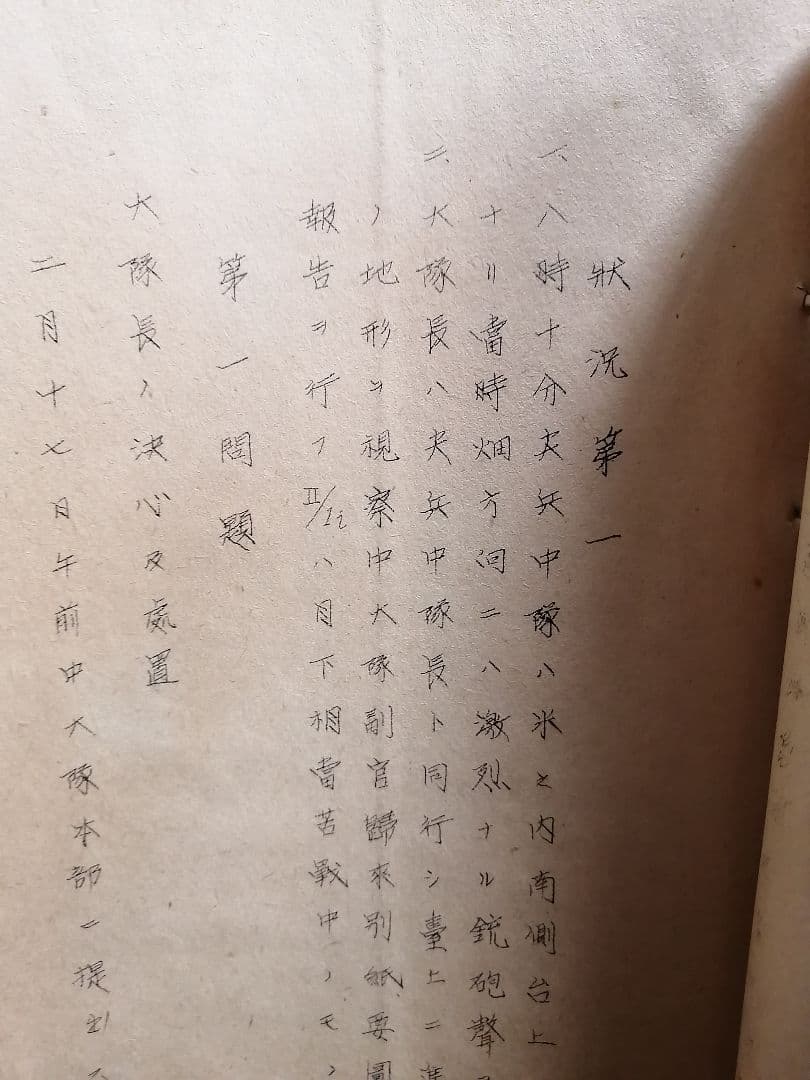 狀況第一
一、八時十分尖兵中隊ハ米ヒ内南側台上
ナリ當時畑方向ニハ激烈ナル銃砲聲
二、大隊長ハ尖兵中隊長ト同行シ臺上ニ進
ノ地形ヲ視察中大隊副官歸來別紙要圖
報告ヲ行フⅡ/1iハ目下相當苦戰中ノモノ
第一問題
大隊長ノ決心及處置
二月十七日午前中大隊本部ニ提出ス